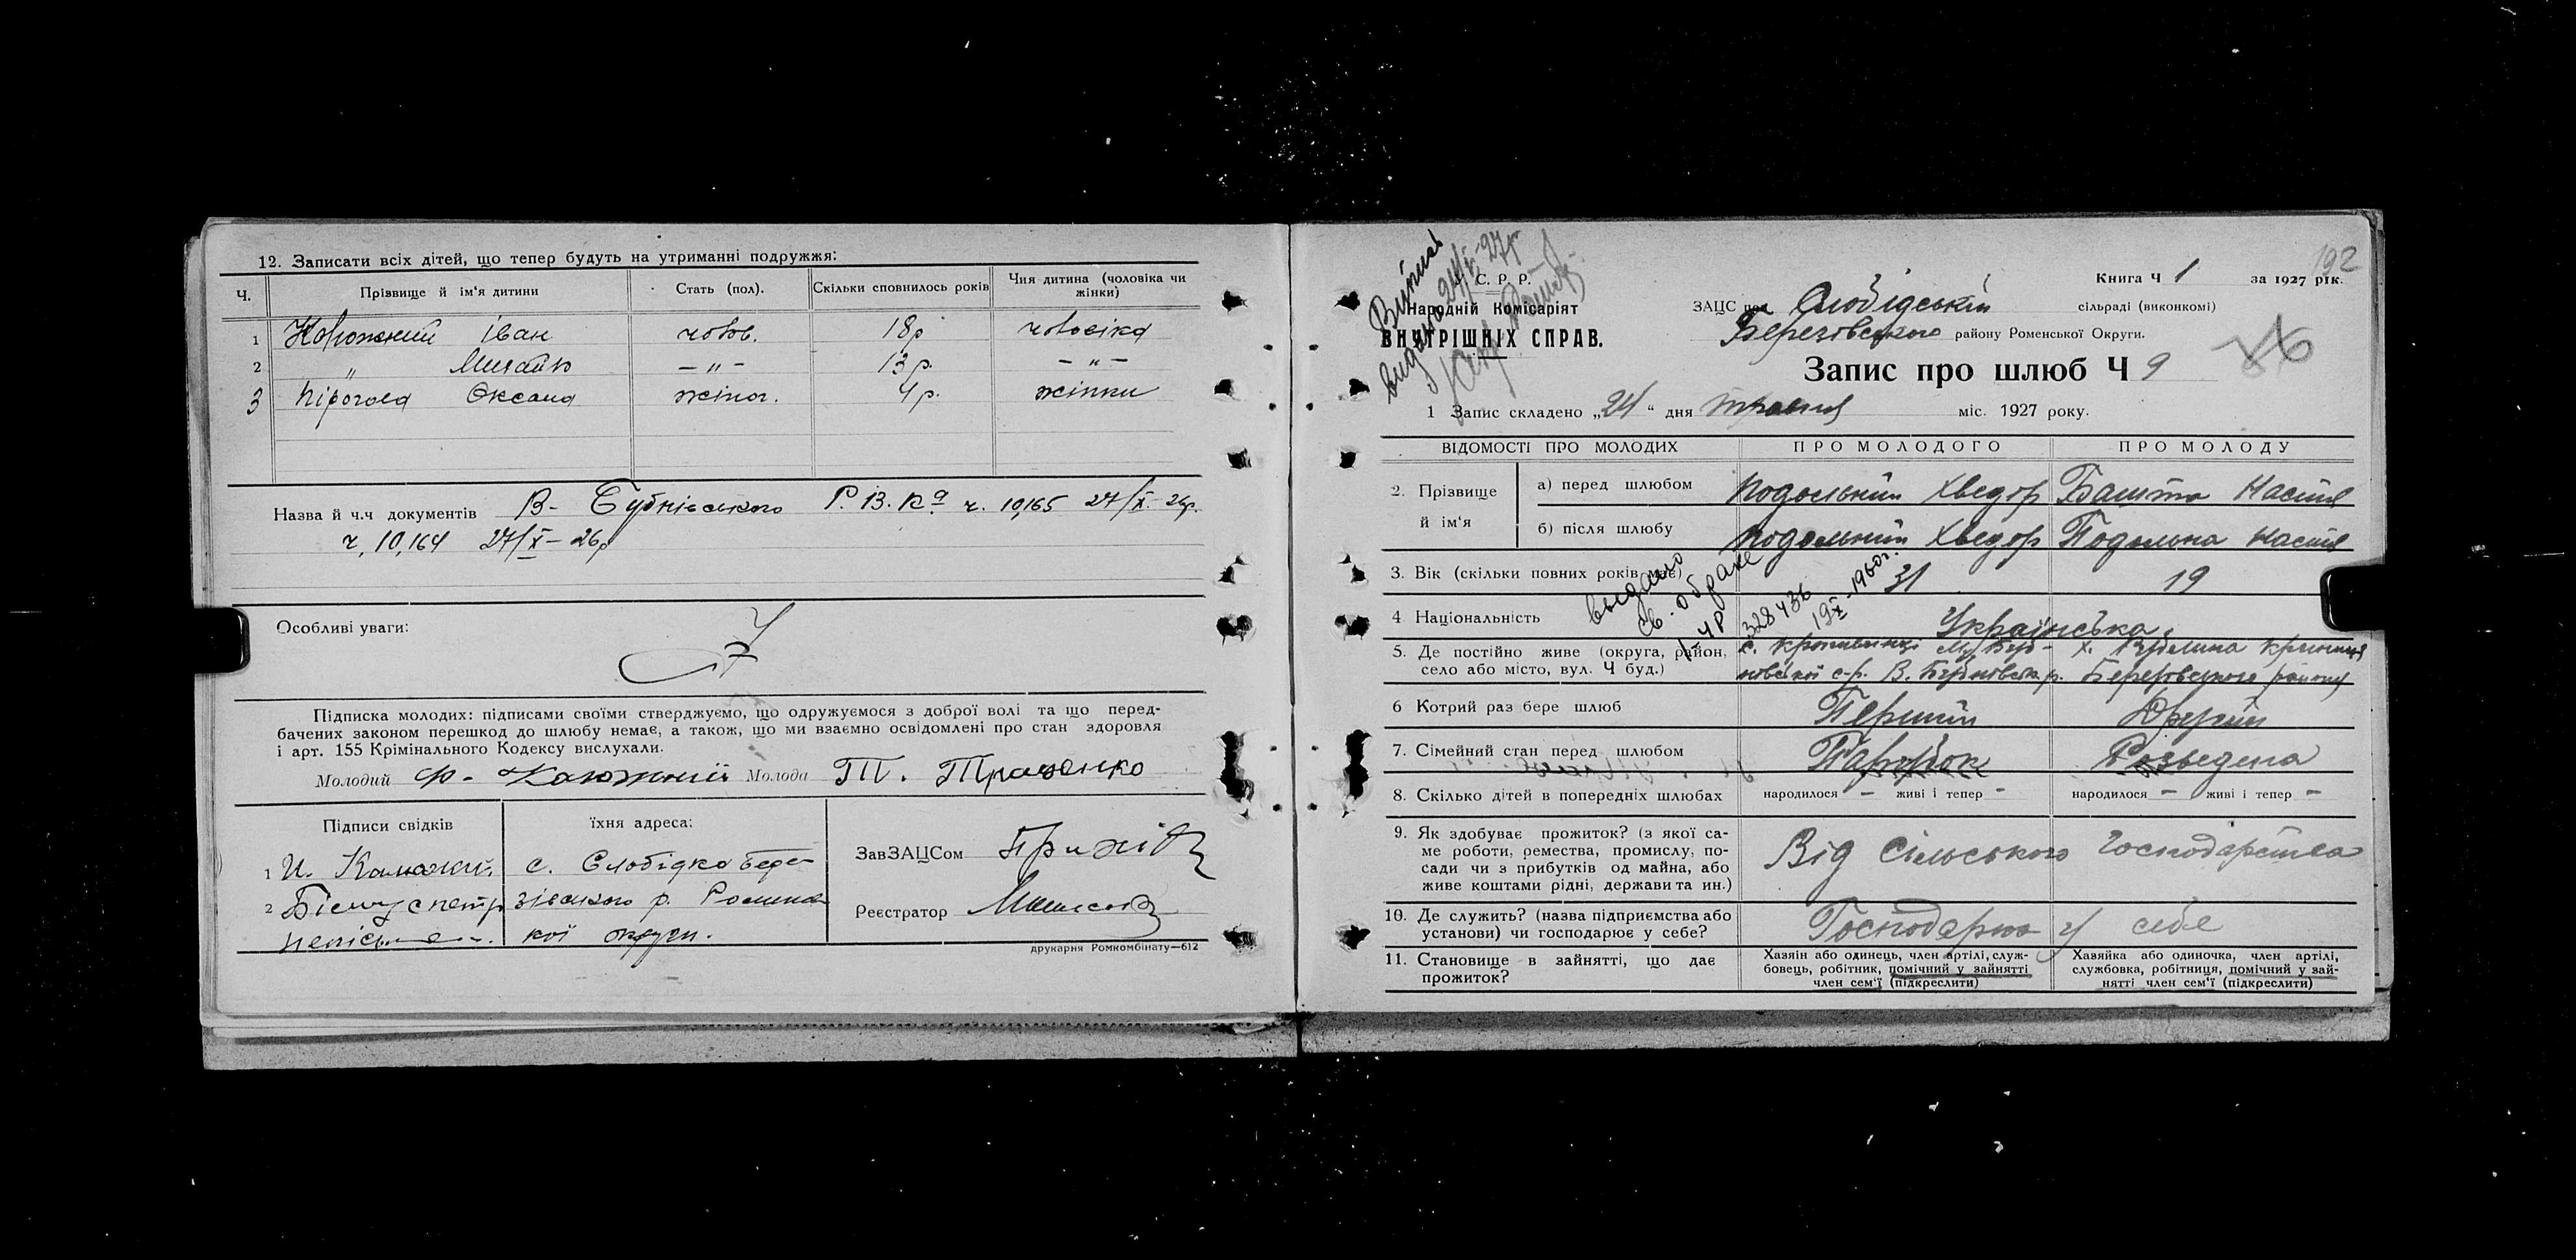 12. Записати всіх дітей, що тепер будуть на утриманні подружжя:
Ч. Прізвище й ім'я дитини Стать (пол). Скільки сповнилось років Чия дитина (чоловіка чи жінки)
1 Іван човов. 18р човосіка
2 " Михайло — " — 13 р. — " —
3 Пірогова Оксана жіноч. 4 р. жінки
Назва й ч.ч документів В- Бубнівського Р.В.К-а ч. 10,165 27/X- 26р.
ч, 10,164 27/X- 26р
Особливі уваги:
Підписка молодих: підписами своїми стверджуємо, що одружуємося з доброї волі та що перед-
бачених законом перешкод до шлюбу немає, а також, що ми взаємно освідомлені про стан здоровля
і арт. 155 Крімінального Кодексу вислухали.
Молодий Ф. Калюжний Молода Т. Траценко
Підписи свідків їхня адреса:
ЗавЗАЦСом
1 И. с. Слобідка Бере-
2 зівського р. Роменсь
Реєстратор
неписьмен. кої округи.
друкарня Ромкомбінату—612
192
Випись
видано 24/V-27р
С. Р. Р.
Народній Комісаріят
ВНУТРІШНІХ СПРАВ.
Книга Ч 1 за 1927 рік.
ЗАЦС при Слобідській сільраді (виконкомі)
Березівського району Роменської Округи.
Запис про шлюб Ч 9
1 Запис складено „24" дня травня міс. 1927 року.
ВІДОМОСТІ ПРО МОЛОДИХ ПРО МОЛОДОГО ПРО МОЛОДУ
2. Прізвище й ім'я
а) перед шлюбом Подольний Хведор Башта Настя
б) після шлюбу Подольний Хведор Подольна Настя
3. Вік (скільки повних років має) 31 19
выдано
св. о браке
1-УР 328436
19 X-1960г.
4 Національність Українська
5. Де постійно живе (округа, район, село або місто, вул. Ч буд.)
с. Кропивинці В. Бубновськ. р. х. Криниця
Березовського району
6 Котрий раз бере шлюб Перший Другий
7. Сімейний стан перед шлюбом Парубок Розведена
8. Скілько дітей в попередніх шлюбах народилося — живі і тепер — народилося — живі і тепер —
9. Як здобуває прожиток? (з якої са-
ме роботи, ремества, промислу, по-
сади чи з прибутків од майна, або
живе коштами рідні, держави та ин.)
Від сільського господарства
10. Де служить? (назва підприємства або
установи) чи господарює у себе?
Господарює у себе
11. Становище в зайнятті, що дає
прожиток?
Хазяїн або одинець, член артілі, служ-
бовець, робітник, помічний у зайнятті
член сем'ї (підкреслити)
Хазяйка або одиночка, член артілі,
службовка, робітниця, помічний у зай-
нятті член сем'ї (підкреслити)